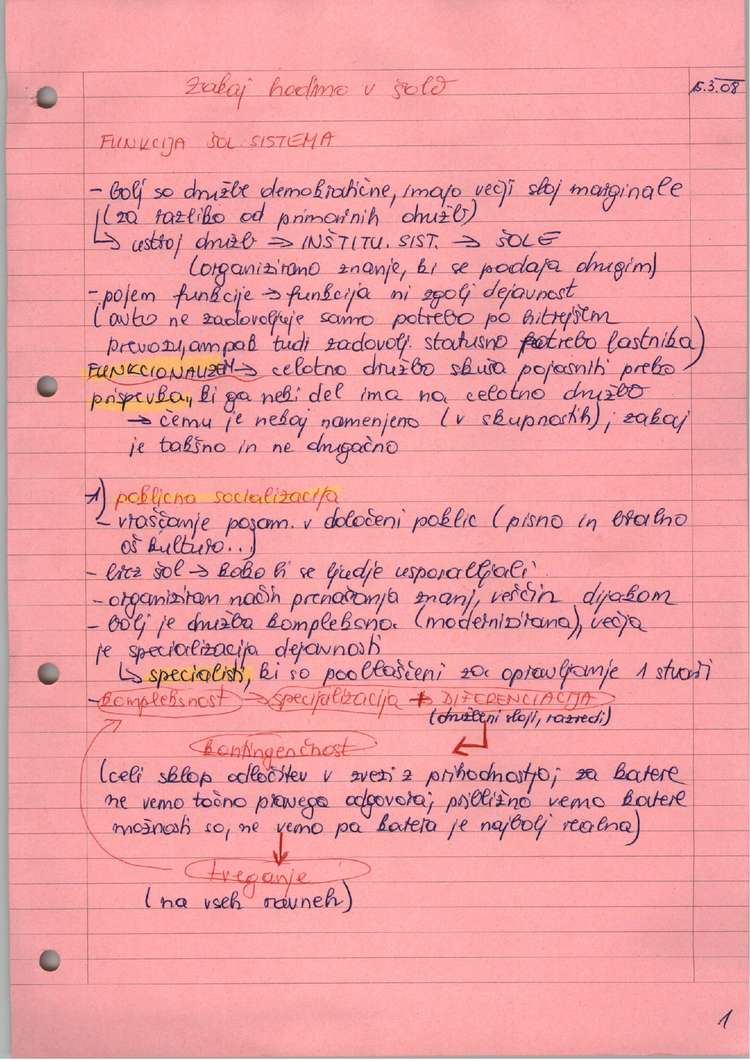 Zakaj hodimo v šolo
5.3.08
FUNKCIJA ŠOL. SISTEMA
- bolj so družbe demokratične, imajo večji sloj marginale
(za razliko od primarnih družb)
↳ ustroj družb → INŠTITU. SIST. → ŠOLE
(organizirano znanje, ki se podaja drugim)
- pojem funkcije → funkcija ni zgolj dejavnost
(avto ne zadovoljuje samo potrebo po hitrejšem
prevozu, ampak tudi zadovolj. statusno potrebo lastnika)
FUNKCIONALIZEM → celotno družbo skuša pojasniti preko
prispevka, ki ga neki del ima na celotno družbo
→ čemu je nekaj namenjeno (v skupnostih), zakaj
je takšno in ne drugačno
1) poklicna socializacija
- vraščanje posam. v določeni poklic (pisno in oralno
oš. kulturo...)
- brez šol → kako bi se ljudje usposabljali
- organiziran način prenašanja znanj, veščin dijakom
- bolj je družba kompleksna (modernizirana), večja
je specializacija dejavnosti
↳ specialisti, ki so pooblaščeni za opravljanje 1 stvari
- kompleksnost → specijalizacija + DIFERENCIACIJA
(družbeni sloji, razredi)
kontingenčnost
(celi sklop odločitev v zvezi z prihodnostjo; za katere
ne vemo točno pravega odgovora; približno vemo katere
možnosti so, ne vemo pa katera je najbolj realna)
tveganje
(na vseh ravneh)
1